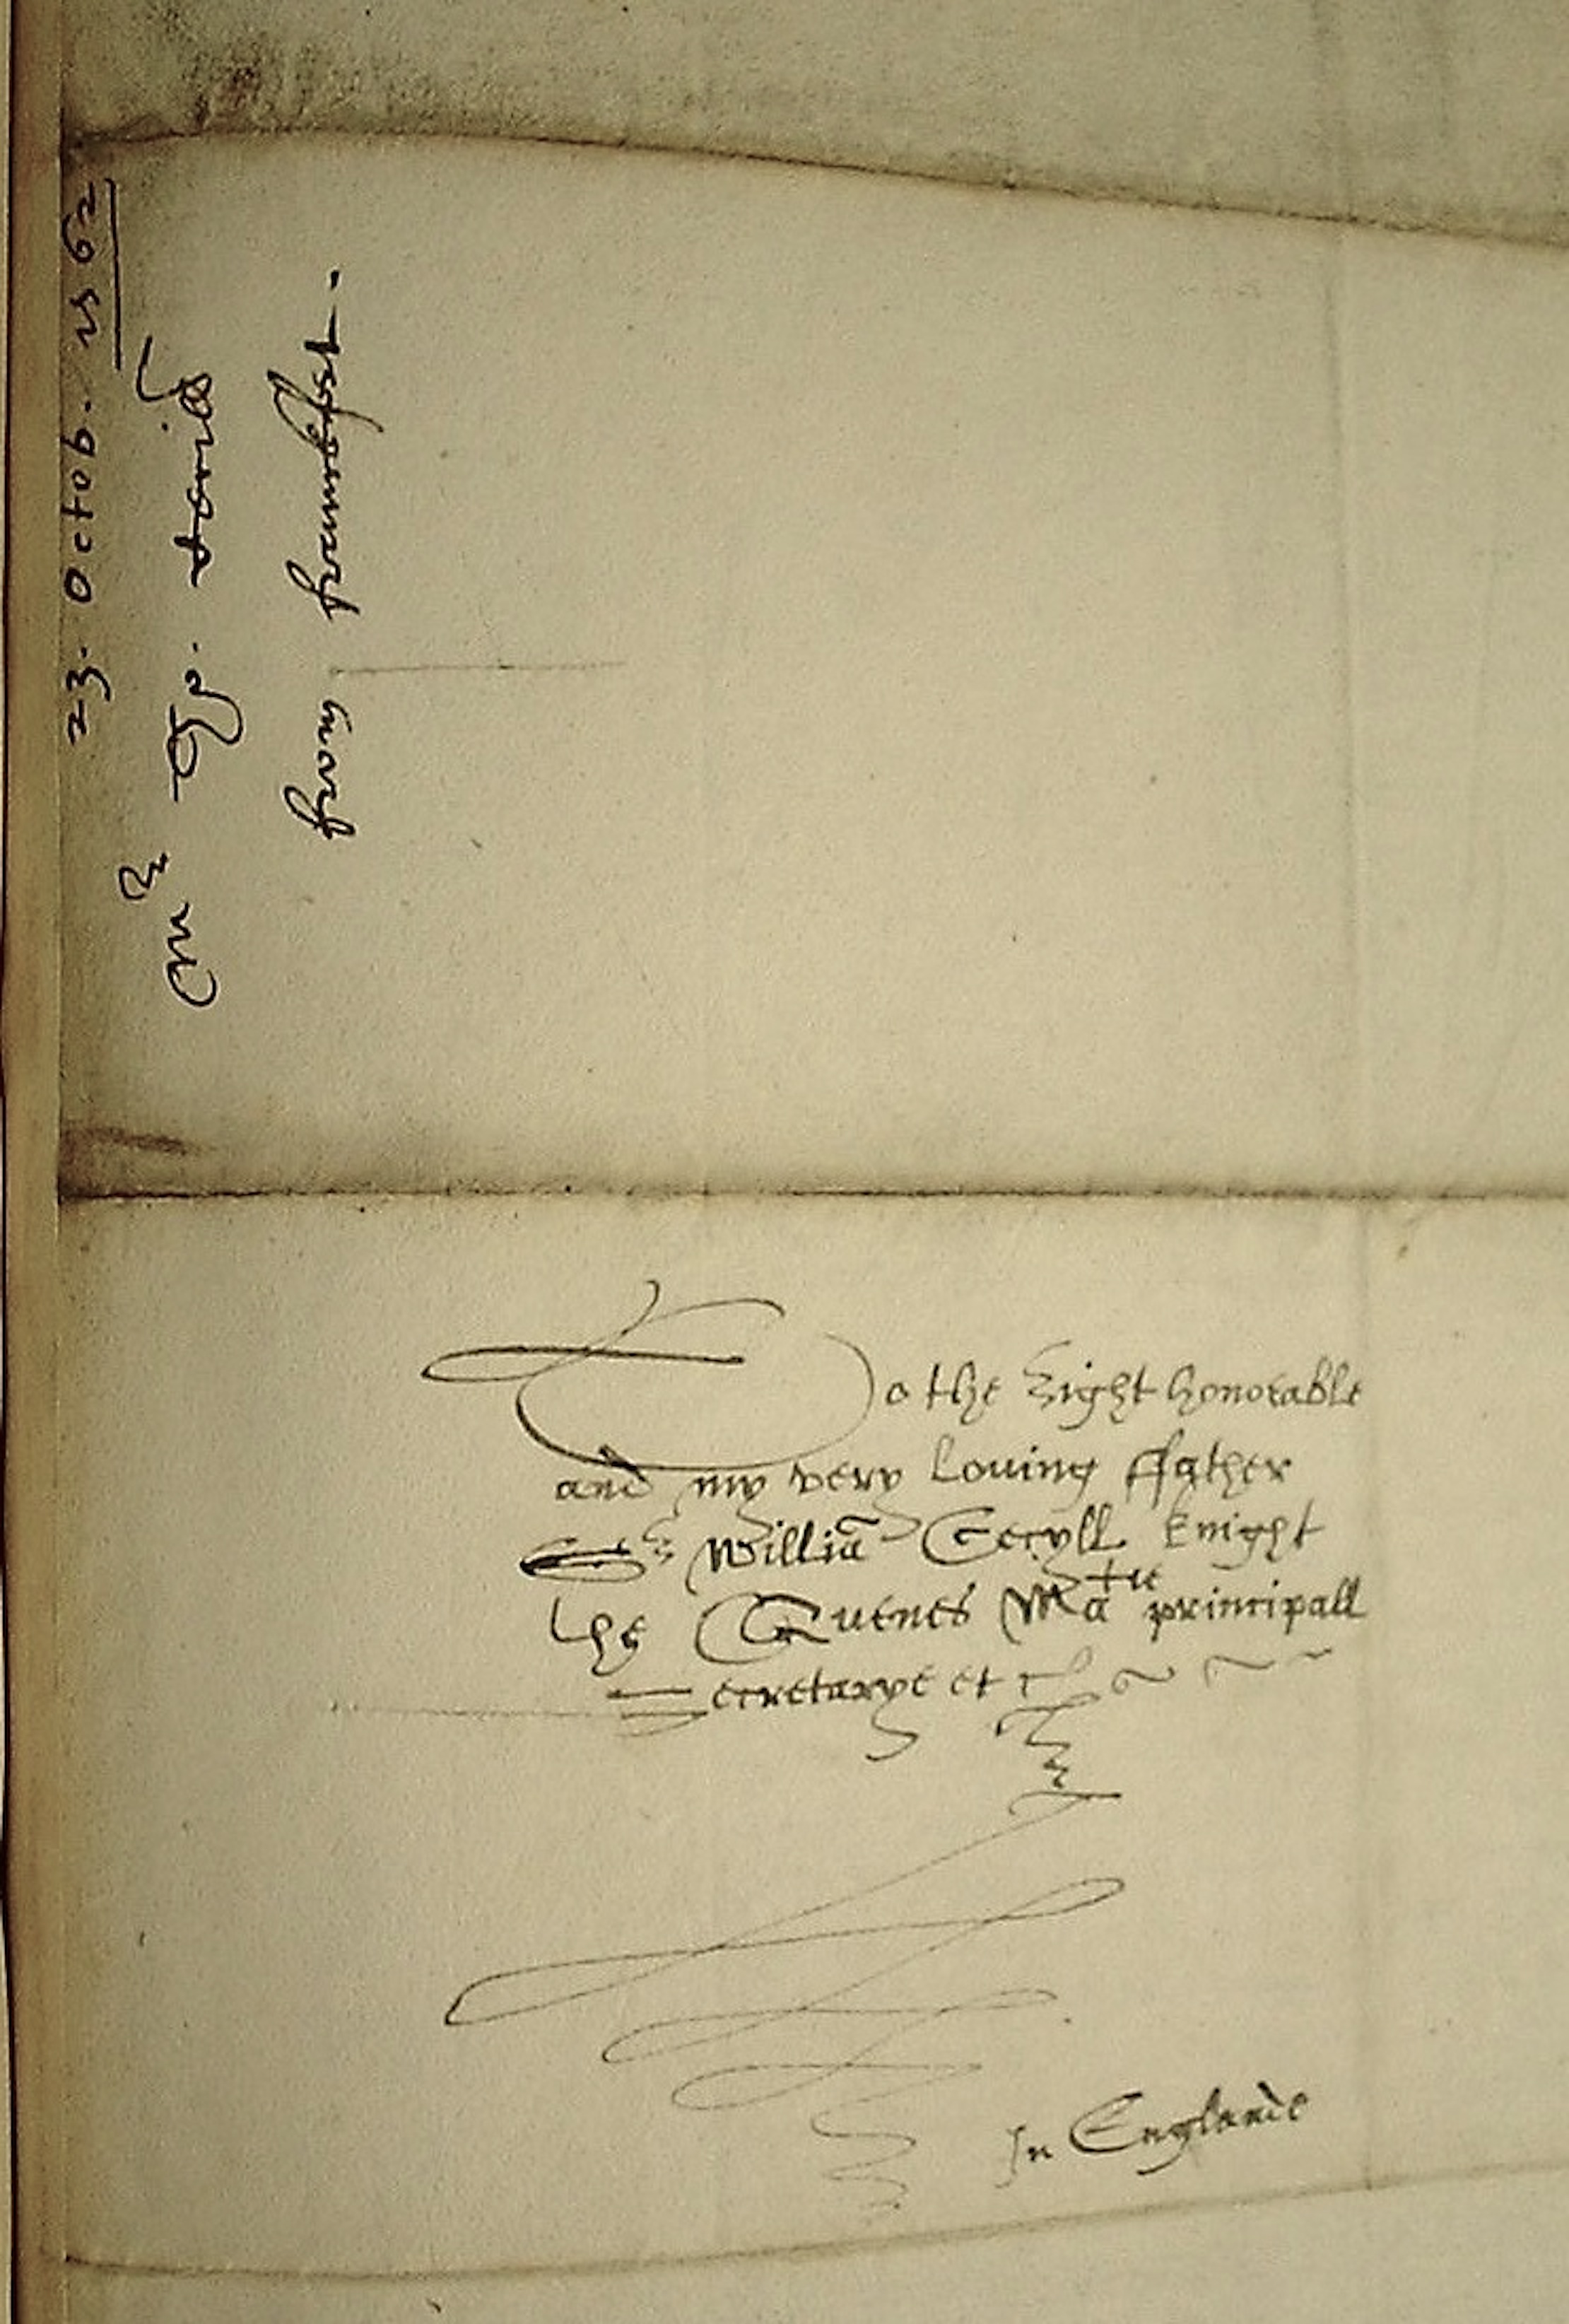 23. Octob. 1562
Mr Tho. windebā
from francfort.
To the Right honorable
and my very Loving ffather
Sr Williā Cecyll knight
the Quenes Matie principall
Secretarye et c
In Englande